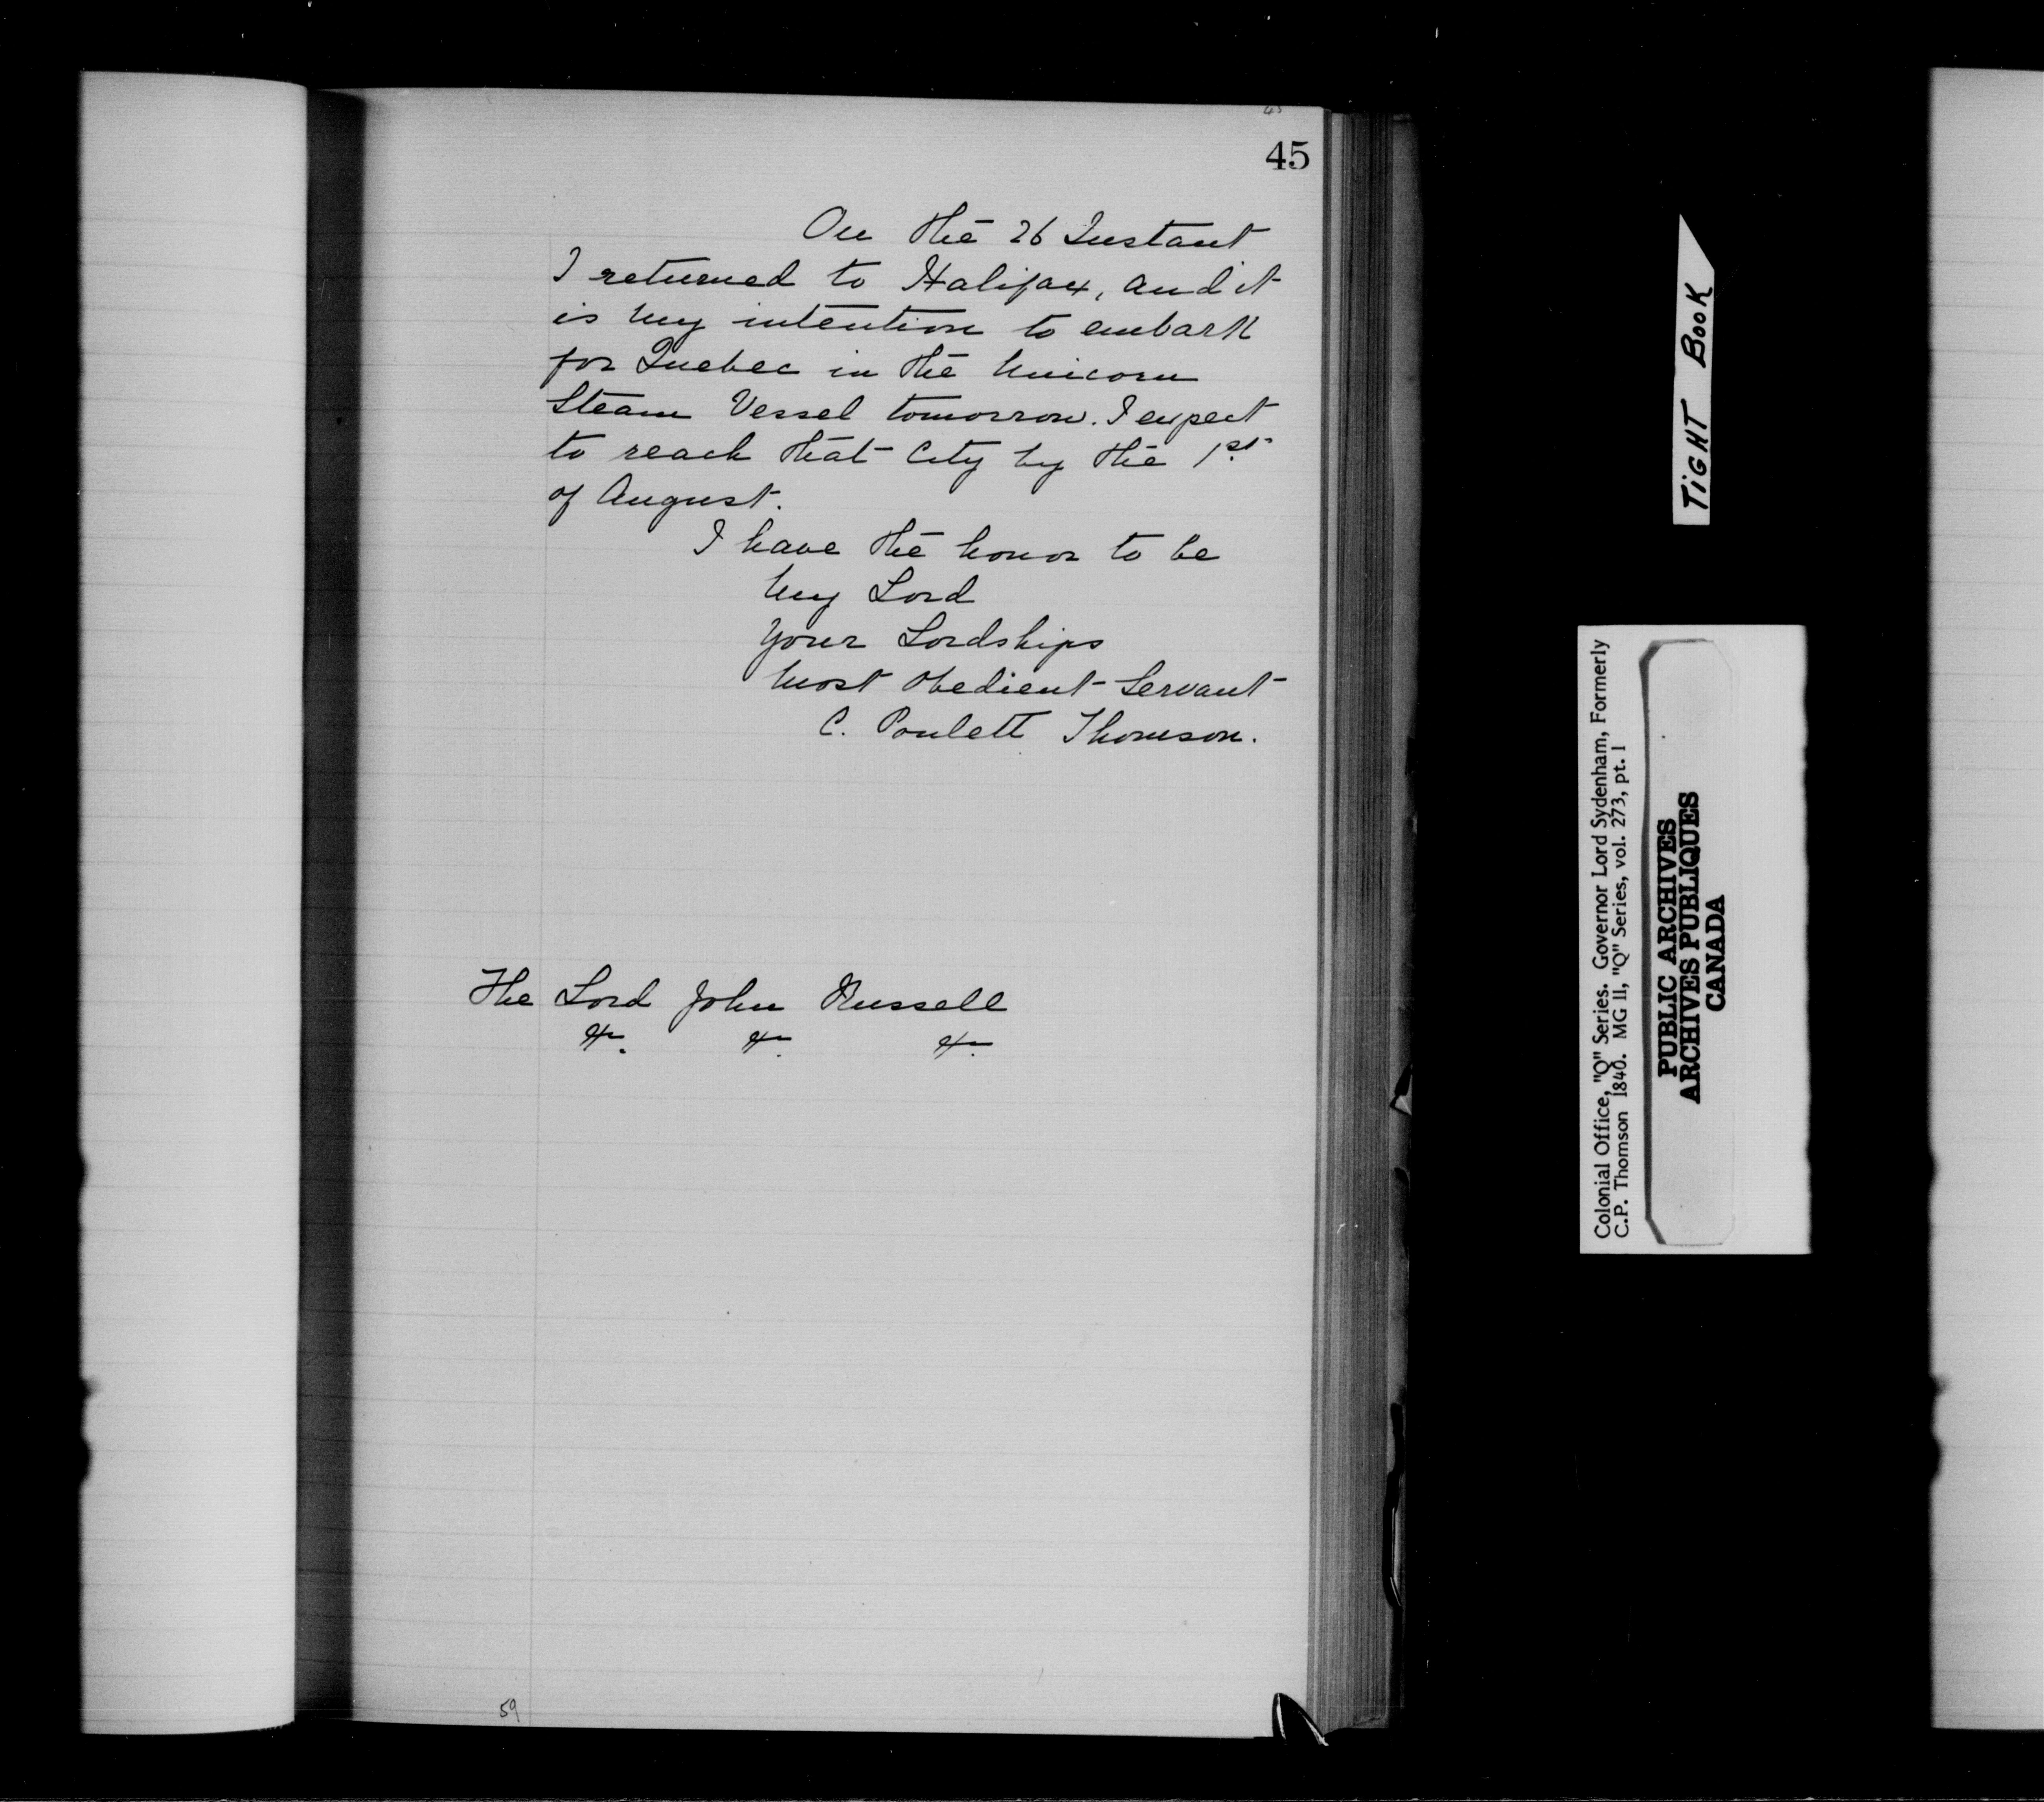 45
45
On the 26 Instant
I returned to Halifax, and it
is my intention to embark
for Quebec in the Unicorn
Steam Vessel tomorrow. I expect
to reach that City by the 1st
of August.
I have the honor to be
My Lord
Your Lordships
Most Obedient Servant
C. Poulett Thomson.
The Lord John Russell
&c. &c. &c.
59
TIGHT BOOK
Colonial Office, "Q" Series. Governor Lord Sydenham, Formerly
C.P. Thomson 1840. MG 11, "Q" Series, vol. 273, pt. 1
PUBLIC ARCHIVES
ARCHIVES PUBLIQUES
CANADA